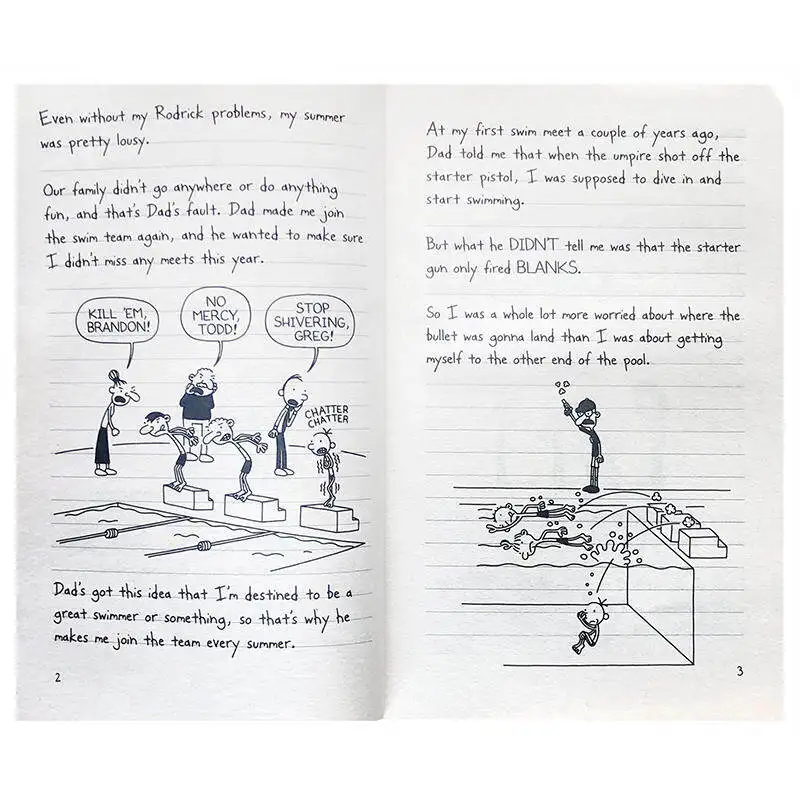 Even without my Rodrick problems, my summer
was pretty lousy.
Our family didn't go anywhere or do anything
fun, and that's Dad's fault. Dad made me join
the swim team again, and he wanted to make sure
I didn't miss any meets this year.
KILL 'EM,
BRANDON!
NO
MERCY,
TODD!
STOP
SHIVERING,
GREG!
CHATTER
CHATTER
Dad's got this idea that I'm destined to be a
great swimmer or something, so that's why he
makes me join the team every summer.
2
At my first swim meet a couple of years ago,
Dad told me that when the umpire shot off the
starter pistol, I was supposed to dive in and
start swimming.
But what he DIDN'T tell me was that the starter
gun only fired BLANKS.
So I was a whole lot more worried about where the
bullet was gonna land than I was about getting
myself to the other end of the pool.
3